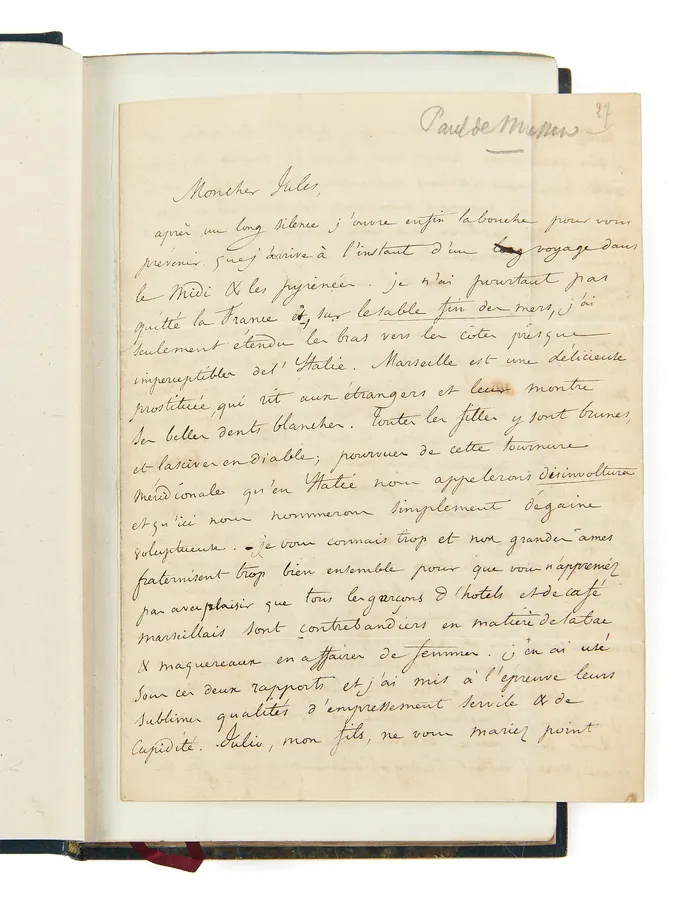 Paul de Musset
27
Moncher Jules,
après un long silence j'ouvre enfin la bouche pour vous
prévenir que j'arrive à l'instant d'un long voyage dans
le Midi & les pyrénées. je n'ai pourtant pas
quitté la France et, sur le sable fin des mers, j'ai
seulement étendu les bras vers les côtes presque
imperceptibles de l'Italie. Marseille est une délicieuse
prostituée qui rit aux étrangers et leur montre
ses belles dents blanches. Toutes les filles y sont brunes,
et lascives en diable; pourvues de cette tournure
méridionale qu'en Italie nous appelerons disinvoltura
et qu'ici nous nommerons simplement dégaine
voluptueuse. - je vous connais trop et nos grandes âmes
fraternisent trop bien ensemble pour que vous n'appreniez
pas avec plaisir que tous les garçons d'hotels et de café
marseillais sont contrebandiers en matière de tabac
& maquereaux en affaires de femmes. j'en ai usé
sous ces deux rapports et j'ai mis à l'épreuve leurs
sublimes qualités d'empressement servile & de
cupidité. Julio, mon fils, ne vous mariez point